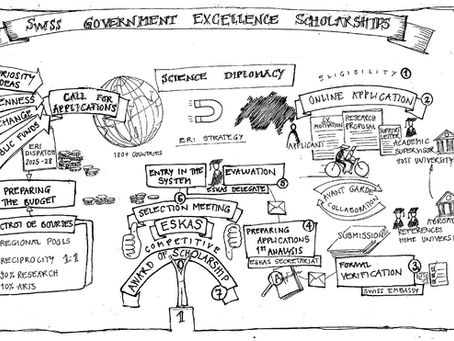 SWISS GOVERNMENT EXCELLENCE SCHOLARSHIPS
RIOSITY
DEAS
ENNESS
CHANGE
BLIC FUNDS
CALL FOR
APPLICATIONS
180+ COUNTRIES
ERI
DISPATCH
2025-28
PREPARING
THE BUDGET
CTROI DE BOURSES
REGIONAL POOLS
RECIPROCITY 1:1
90% RESEARCH
10% ARTS
SCIENCE DIPLOMACY
ERI STRATEGY
ELIGIBILITY 1
ONLINE APPLICATION 2
APPLICANT
CV
MOTIVATION
RESEARCH
PROPOSAL
SUPPORT
LETTER
ACADEMIC
SUPERVISOR
HOST UNIVERSITY
AVANT GARDE
COLLABORATION
ABROAD
REFERENCES
HOME UNIVERS
SUBMISSION
FORMAL
VERIFICATION
3
SWISS EMBASSY
4
PREPARING
APPLICATIONS
1ST ANALYSIS
ESKAS SECRETARIAT
ENTRY IN THE
SYSTEM
EVALUATION
ESKAS DELEGATE
5
6
SELECTION MEETING
ESKAS
COMPETITIVE
AWARD OF SCHOLARSHIP
7
1